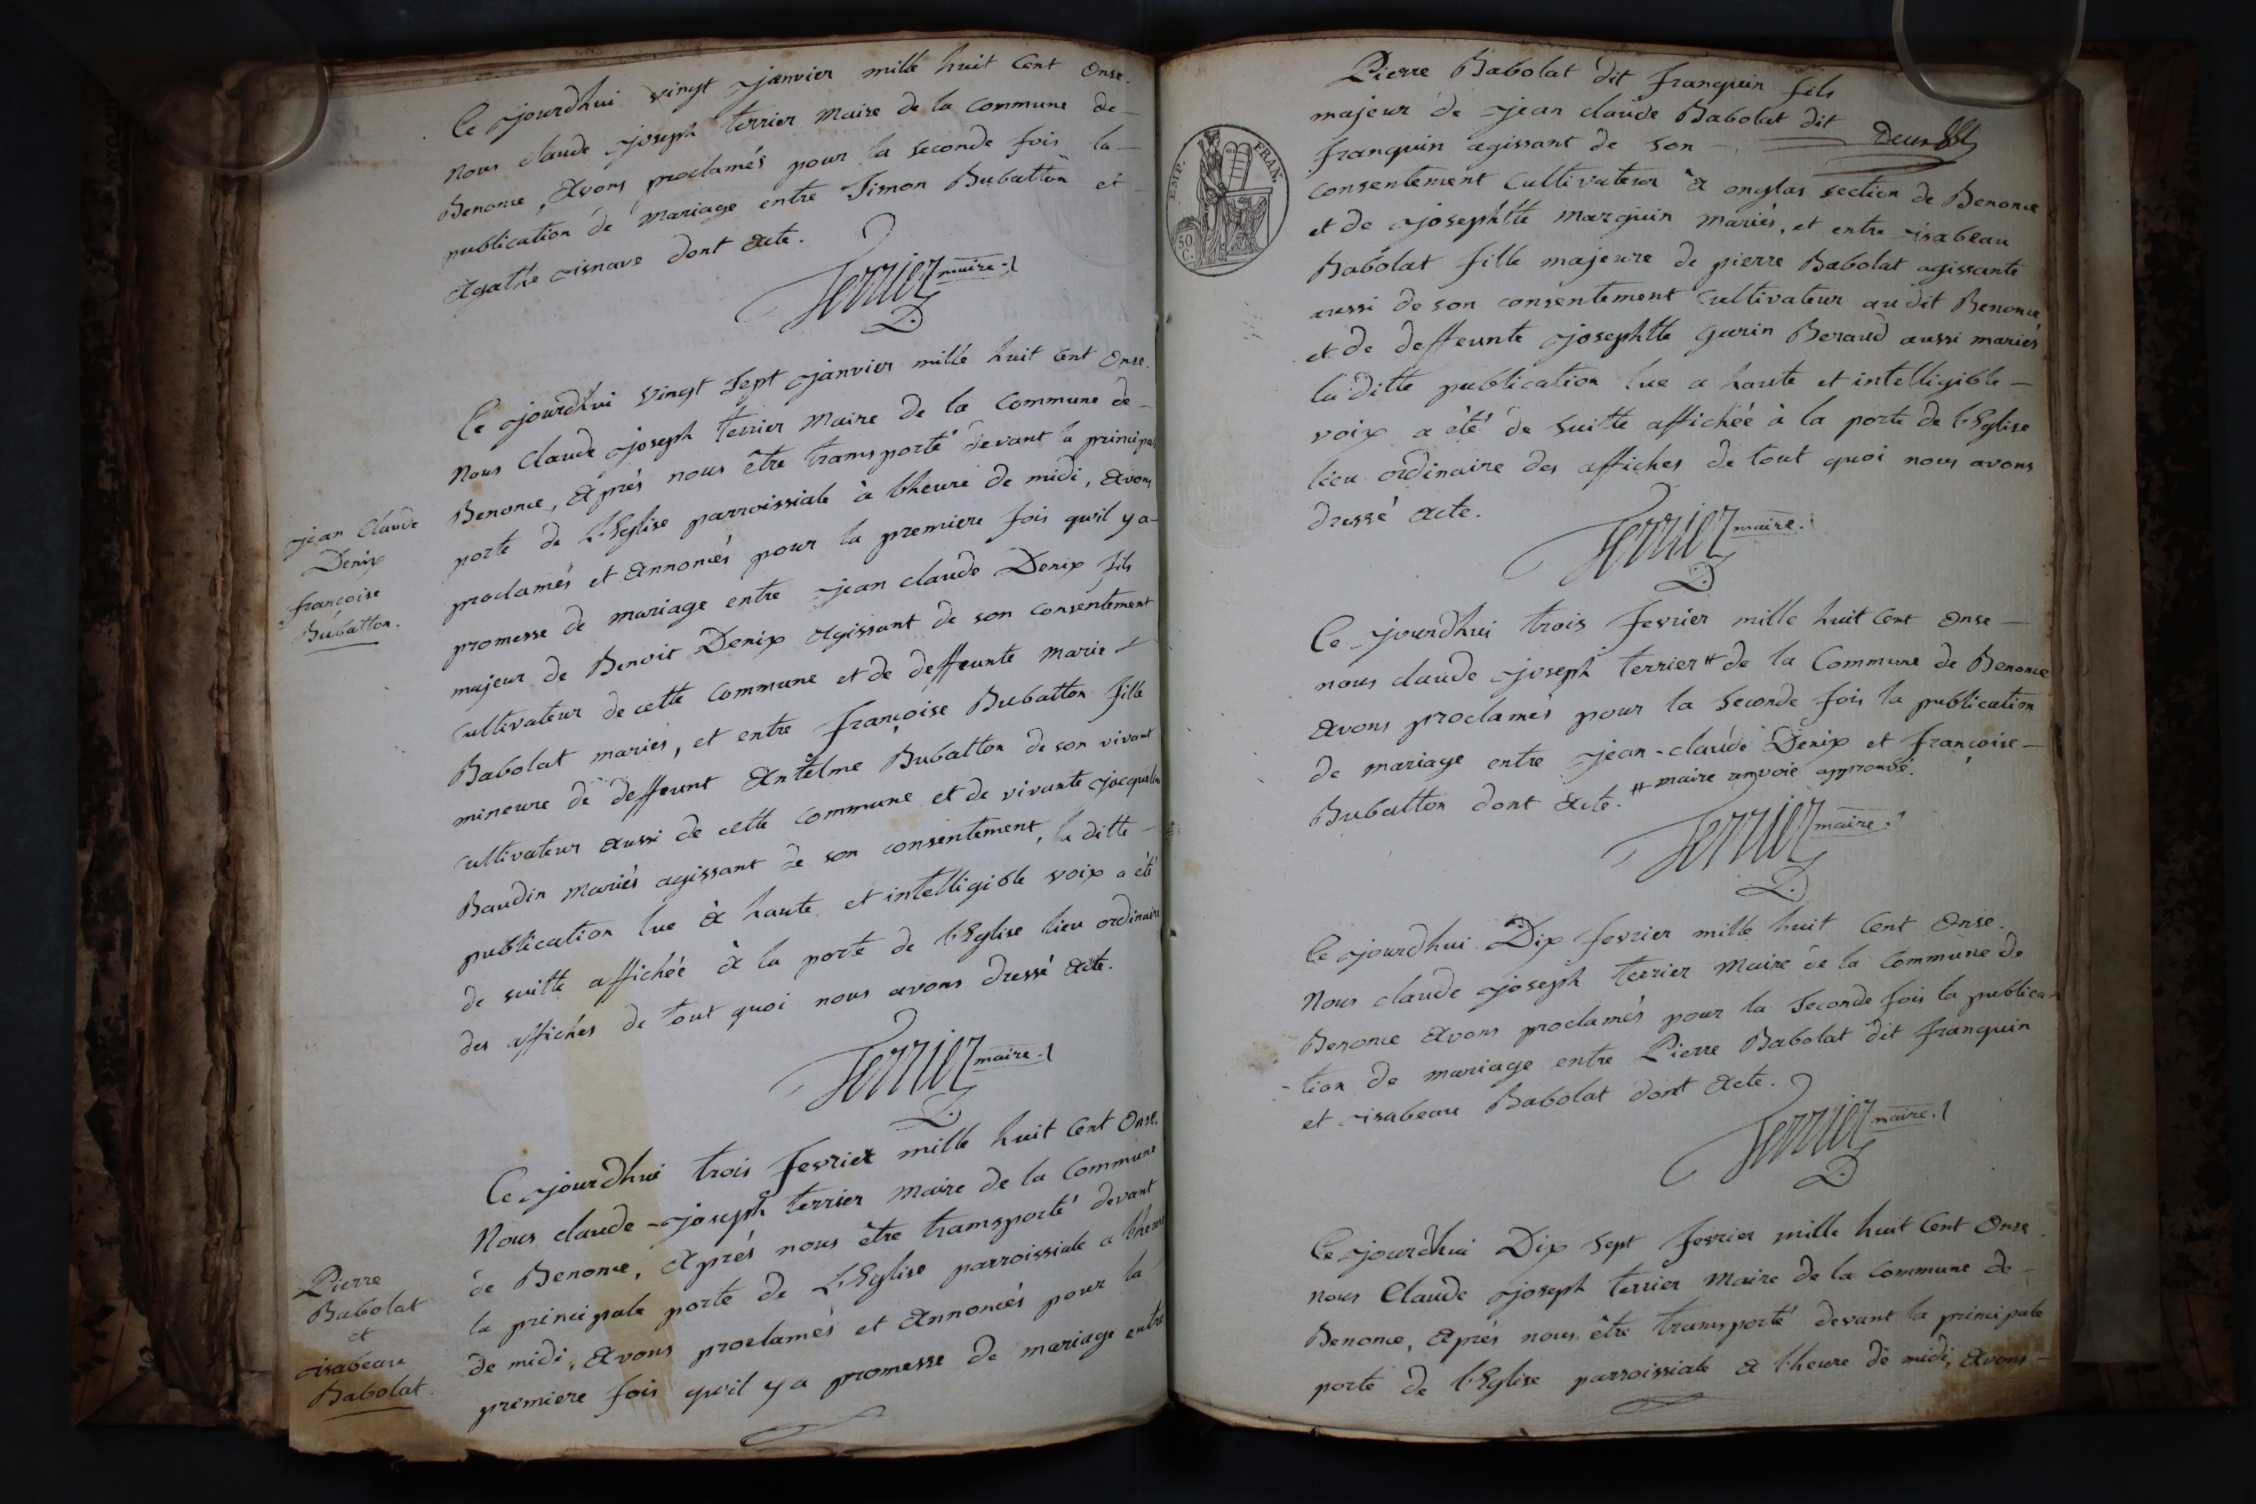 Ce jourdhui vingt janvier mille huit cent onse.
Nous claude joseph terrier Maire de la commune de
Benonce, Avons proclamés pour la seconde fois la
publication de mariage entre Simon Bubatton et
Agathe jsnave dont Acte.
Terrier maire
Ce jourdhui vingt Sept janvier mille huit cent onse.
Nous Claude joseph terrier Maire de la Commune de
Benonce, Après nous être transporté devant la principale
porte de l'Eglise parroissiale à l'heure de midi, Avons
jean Claude
Denix
françoise
Bubatton.
proclamés et Annoncés pour la premiere fois qu'il y a
promesse de mariage entre jean claude Denix fils
majeur de Benoit Denix Agissant de son consentement
cultivateur de cette commune et de deffeunte Marie
Babolat mariés, et entre françoise Bubatton fille
mineure de deffeunt Antelme Bubatton de son vivant
cultivateur Aussi de cette commune et de vivante jacqueline
Baudin Mariés agissant de son consentement, la ditte
publication lue à haute et intelligible voix a été
de suitte affichée à la porte de l'Eglise lieu ordinaire
des affiches de tout quoi nous avons dressé Acte.
Terrier maire
Ce jourdhui trois fevrier mille huit cent onse.
Nous claude joseph terrier Maire de la Commune
de Benonce, Après nous être transporté devant
la principale porte de l'Eglise parroissiale a l'heure
Pierre
Babolat
et
isabeau
Babolat.
de midi, Avons proclamés et Annoncés pour la
premiere fois qu'il y a promesse de mariage entre
EMP. FRAN.
50
C.
Pierre Babolat dit franquin fils
majeur de jean claude Babolat dit
franquin agissant de son
consentement Cultivateur à onglas section de Benonce
et de josephtte marquin mariés, et entre isabeau
Babolat fille majeure de pierre Babolat agissante
aussi de son consentement cultivateur au dit Benonce
et de deffeunte josephtte gurin Beraud aussi mariés
la ditte publication lue a haute et intelligible
voix a été de Suitte affichée à la porte de l'Eglise
lieu ordinaire des affiches de tout quoi nous avons
dressé Acte.
Terrier maire.
Ce jourdhui trois fevrier mille huit cent onse
nous claude joseph terrier # de la Commune de Benonce
Avons proclamés pour la Seconde fois la publication
de mariage entre jean-claude Denix et françoise
Bubatton dont Acte. # maire renvoie approuvé.
Terrier maire.
Ce jourdhui Dix fevrier mille huit Cent onse.
Nous claude joseph terrier Maire de la Commune de
Benonce Avons proclamés pour la Seconde fois la publica-
-tion de mariage entre Pierre Babolat dit franquin
et isabeau Babolat dont Acte.
Terrier maire.
Ce jourdhui Dix Sept fevrier mille huit Cent onse.
nous Claude joseph terrier Maire de la commune de
Benonce, Après nous être transporté devant la principale
porte de l'Eglise parroissiale a l'heure de midi, Avons